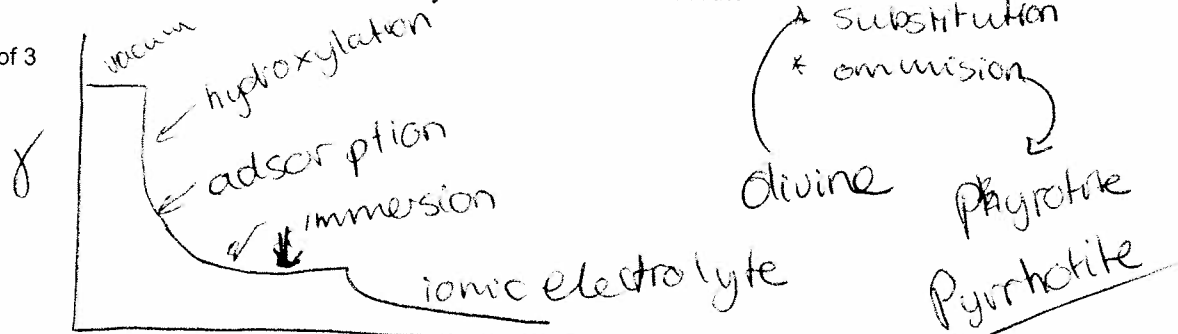 of 3
vacum
hydroxylation
γ
adsorption
immersion
ionic electrolyte
* substitution
* ommision
Olivine
Phyrotite
Pyrrhotite